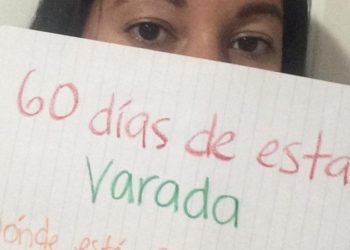 60 días de esta
Varada
ónde está